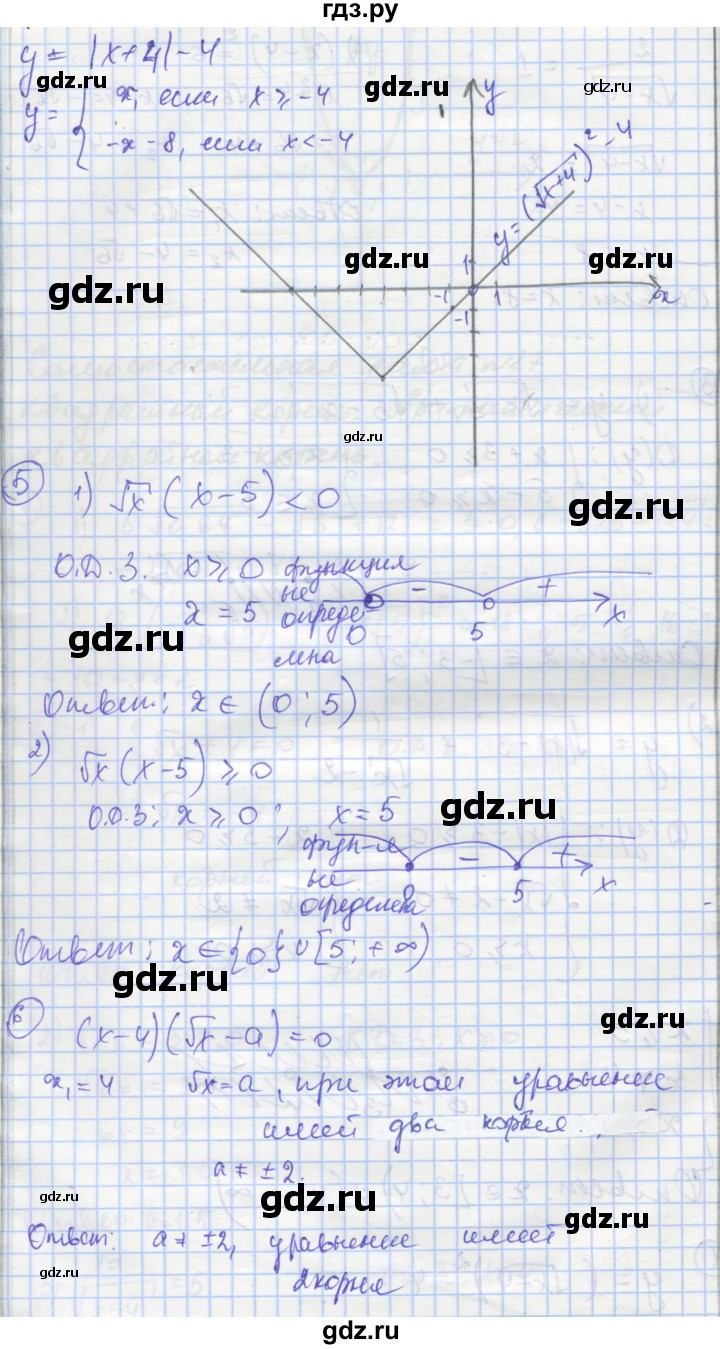 гдз.ру
y = |x+4|-4
y = { x, если x ≥ -4
-x - 8, если x < -4
gdz.ru
gdz.ru
gdz.ru
y
y = (√x+4)² - 4
gdz.ru
gdz.ru
gdz.ru
1
-1
1
x
-1
gdz.ru
5
1) √x (x-5) < 0
gdz.ru
О.Д.З. x ≥ 0 функция не определена
x = 5
- +
0 5 x
gdz.ru
Ответ: x ∈ (0; 5)
2) √x (x-5) ≥ 0
О.Д.З: x ≥ 0; x = 5
gdz.ru
фун-я не определена
- +
0 5 x
Ответ: x ∈ {0} ∪ [5; +∞)
gdz.ru
6
(x-4)(√x - a) = 0
gdz.ru
x₁ = 4 √x = a, при этом уравнение
имеет два корня.
a ≠ ±2.
gdz.ru
gdz.ru
gdz.ru
Ответ: a ≠ ±2, уравнение имеет
2 корня
gdz.ru
gdz.ru
gdz.ru